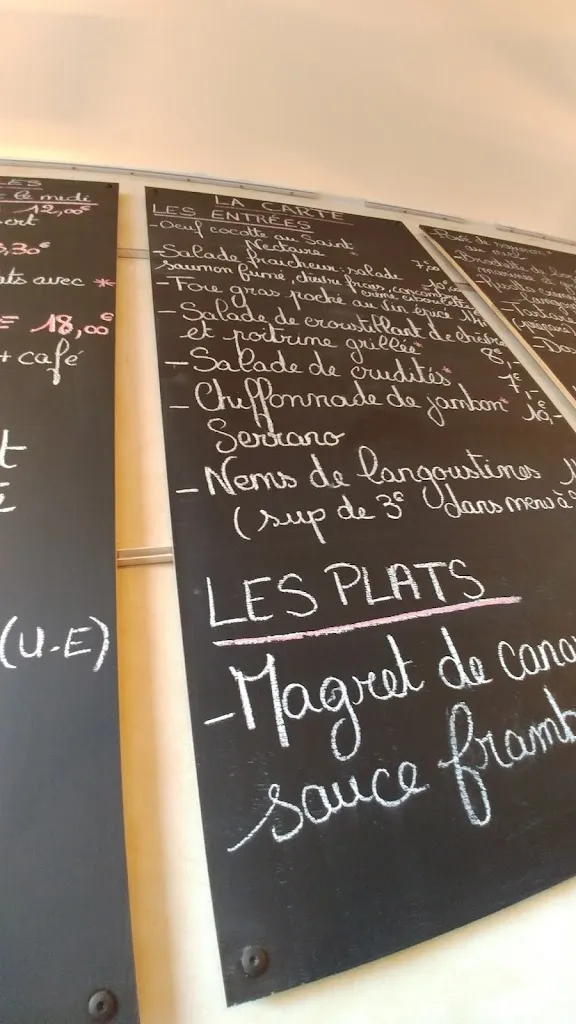 LES
le midi
12,00€
ort
3,30€
ts avec *
= 18,00€
+ café
t
(U-E)
LA CARTE
LES ENTRÉES
- Oeuf cocotte au Saint
Nectaire 7,50
- Salade fraicheur: salade
saumon fumé, chèvre frais, concombre
- Foie gras poché au vin épicé
- Salade de croustillant de chèvre
et poitrine grillée* 8€,-
- Salade de crudités* 7€,-
- Chiffonnade de jambon* 10€,-
Serrano
- Nems de langoustines
(sup de 3€ dans menu à
LES PLATS
- Magret de cana
sauce framb
- Brochette de
- Tartare